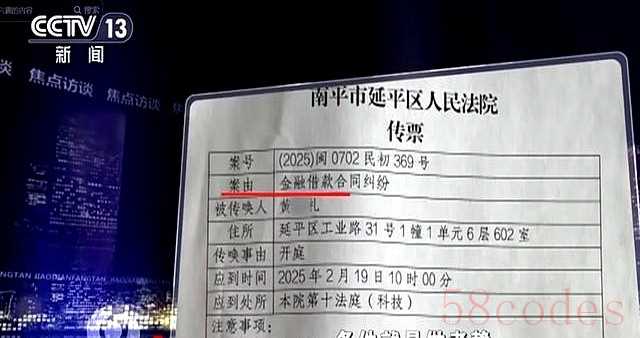 六趣的内容
搜索
CCTV 13
新闻
谈
焦点访谈
焦点访谈
焦
南平市延平区人民法院
传票
案号 (2025)闽0702民初369号
案由 金融借款合同纠纷
被传唤人 黄 礼
住所 延平区工业路31号1幢1单元6层602室
传唤事由 开庭
应到时间 2025年2月19日10时00分
应到处所 本院第十法庭(科技)
注意事项:
58codes